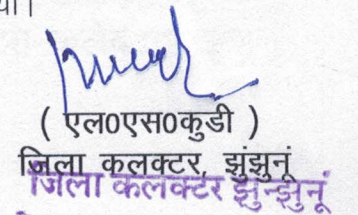 या।
( एल0एस0कुडी )
जिला कलक्टर, झुंझुनूं
जिला कलक्टर झुन्झुनूं